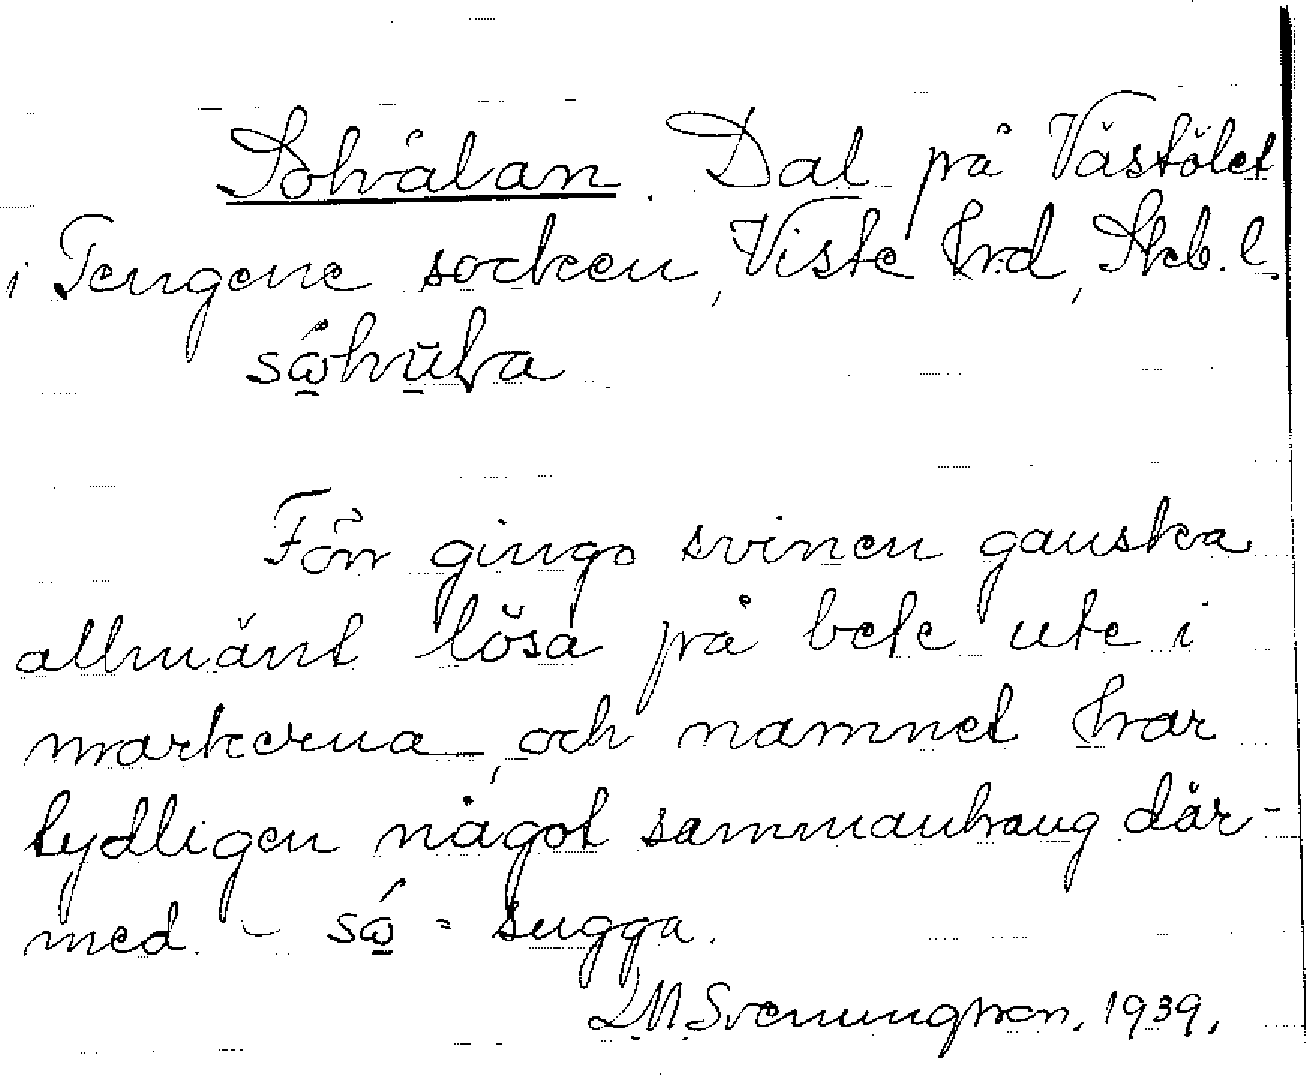 Sohvalan. Dal på Västölet
i Tengene socken, Viste hrd, Skb. l.
Förr gingo svinen ganska
allmänt lösa på bete ute i
markerna, och namnet har
tydligen något sammanhang där-
med. - så = sugga.
L M Svenungsson. 1939.